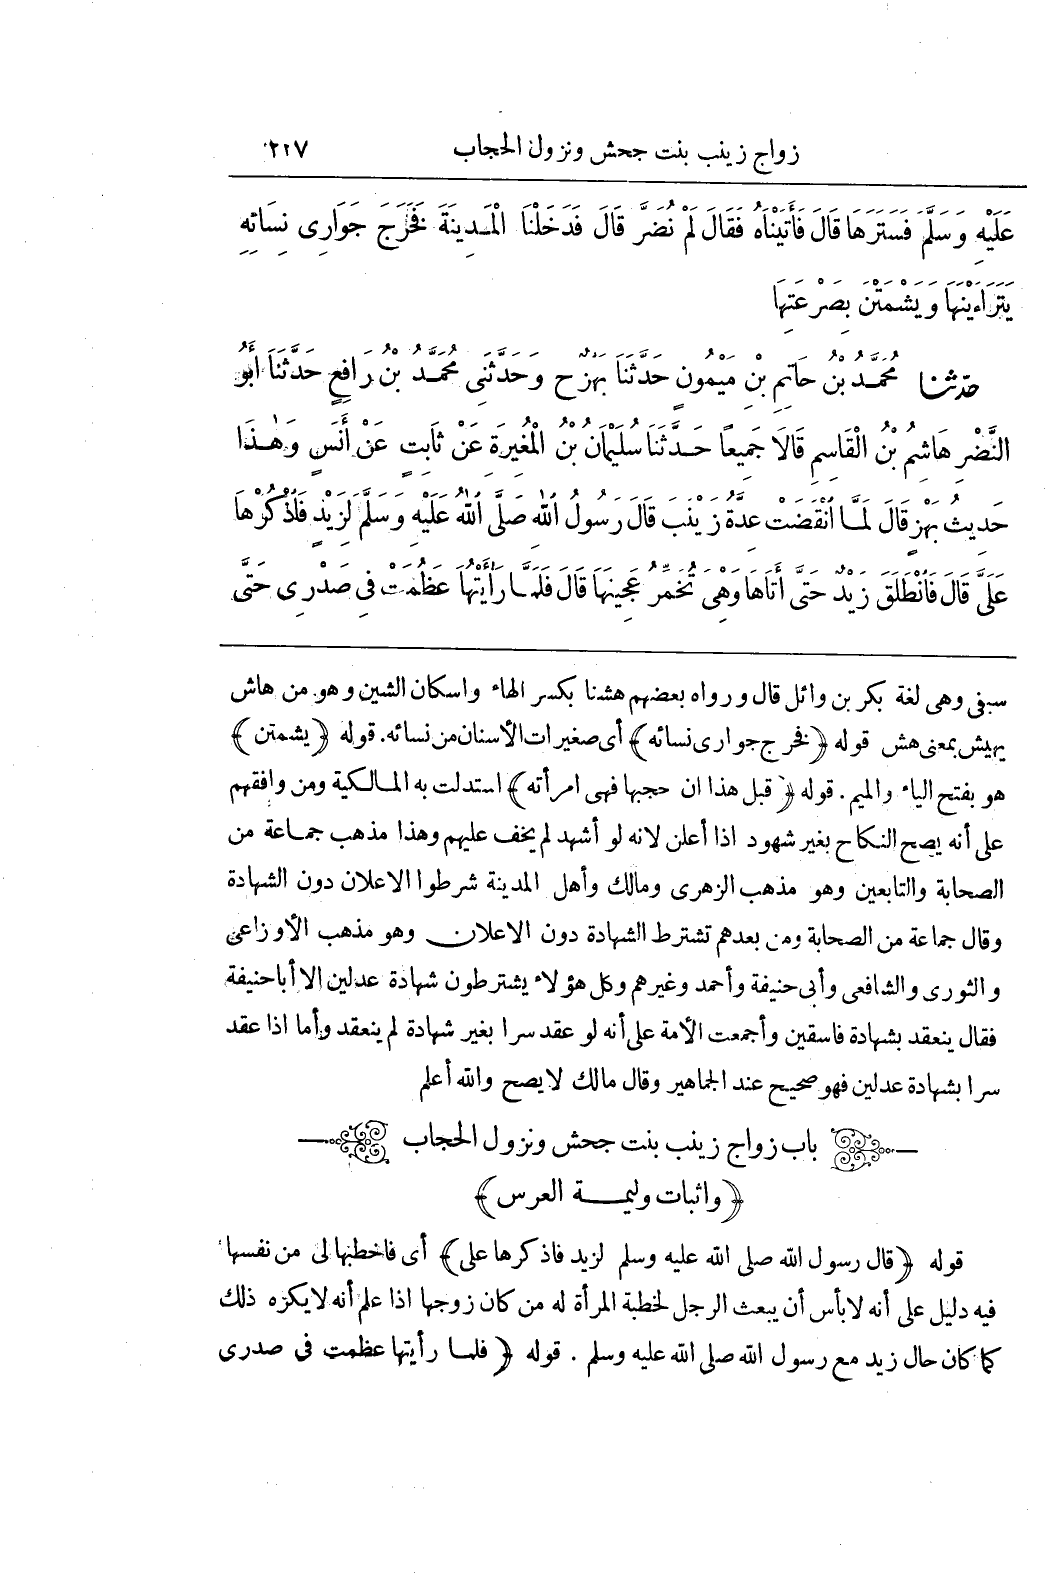 زواج زينب بنت جحش ونزول الحجاب ٢٢٧
عَلَيْهِ وَسَلَّمَ فَسَتَرَهَا قَالَ فَأَتَيْنَاهُ فَقَالَ لَمْ نُضَرَّ قَالَ فَدَخَلْنَا الْمَدِينَةَ فَخَرَجَ جَوَارِى نِسَائِهِ
يَتَرَاءَيْنَهَا وَيَشْمَتْنَ بِصَرْعَتِهَا
حدثنا مُحَمَّدُ بْنُ حَاتِمِ بْنِ مَيْمُونٍ حَدَّثَنَا بَهْزٌ ح وَحَدَّثَنِى مُحَمَّدُ بْنُ رَافِعٍ حَدَّثَنَا أَبُو
النَّضْرِ هَاشِمُ بْنُ الْقَاسِمِ قَالَا جَمِيعًا حَدَّثَنَا سُلَيْمَانُ بْنُ الْمُغِيرَةِ عَنْ ثَابِتٍ عَنْ أَنَسٍ وَهٰذَا
حَدِيثُ بَهْزٍ قَالَ لَمَّا ٱنْقَضَتْ عِدَّةُ زَيْنَبَ قَالَ رَسُولُ ٱللهِ صَلَّى ٱللهُ عَلَيْهِ وَسَلَّمَ لِزَيْدٍ فَاذْكُرْهَا
عَلَىَّ قَالَ فَانْطَلَقَ زَيْدٌ حَتَّى أَتَاهَا وَهِىَ تُخَمِّرُ عَجِينَهَا قَالَ فَلَمَّا رَأَيْتُهَا عَظُمَتْ فِى صَدْرِى حَتَّى
سبقى وهى لغة بكر بن وائل قال ورواه بعضهم هشنا بكسر الهاء واسكان الشين وهو من هاش
يهيش بمعنى هش قوله ﴿فخرج جوارى نسائه﴾ أى صغيرات الأسنان من نسائه. قوله ﴿يشمتن﴾
هو بفتح الياء والميم. قوله ﴿قبل هذا ان حجبها فهى امرأته﴾ استدلت به المالكية ومن وافقهم
على أنه يصح النكاح بغير شهود اذا أعلن لانه لو أشهد لم يخف عليهم وهذا مذهب جماعة من
الصحابة والتابعين وهو مذهب الزهرى ومالك وأهل المدينة شرطوا الاعلان دون الشهادة
وقال جماعة من الصحابة ومن بعدهم تشترط الشهادة دون الاعلان وهو مذهب الأوزاعى
والثورى والشافعى وأبى حنيفة وأحمد وغيرهم وكل هؤلاء يشترطون شهادة عدلين الا أبا حنيفة
فقال ينعقد بشهادة فاسقين وأجمعت الأمة على أنه لو عقد سرا بغير شهادة لم ينعقد وأما اذا عقد
سرا بشهادة عدلين فهو صحيح عند الجماهير وقال مالك لا يصح والله أعلم
باب زواج زينب بنت جحش ونزول الحجاب
﴿واثبات وليمة العرس﴾
قوله ﴿قال رسول الله صلى الله عليه وسلم لزيد فاذكرها على﴾ أى فاخطبها لى من نفسها
فيه دليل على أنه لا بأس أن يبعث الرجل لخطبة المرأة له من كان زوجها اذا علم أنه لا يكره ذلك
كما كان حال زيد مع رسول الله صلى الله عليه وسلم. قوله ﴿فلما رأيتها عظمت فى صدرى